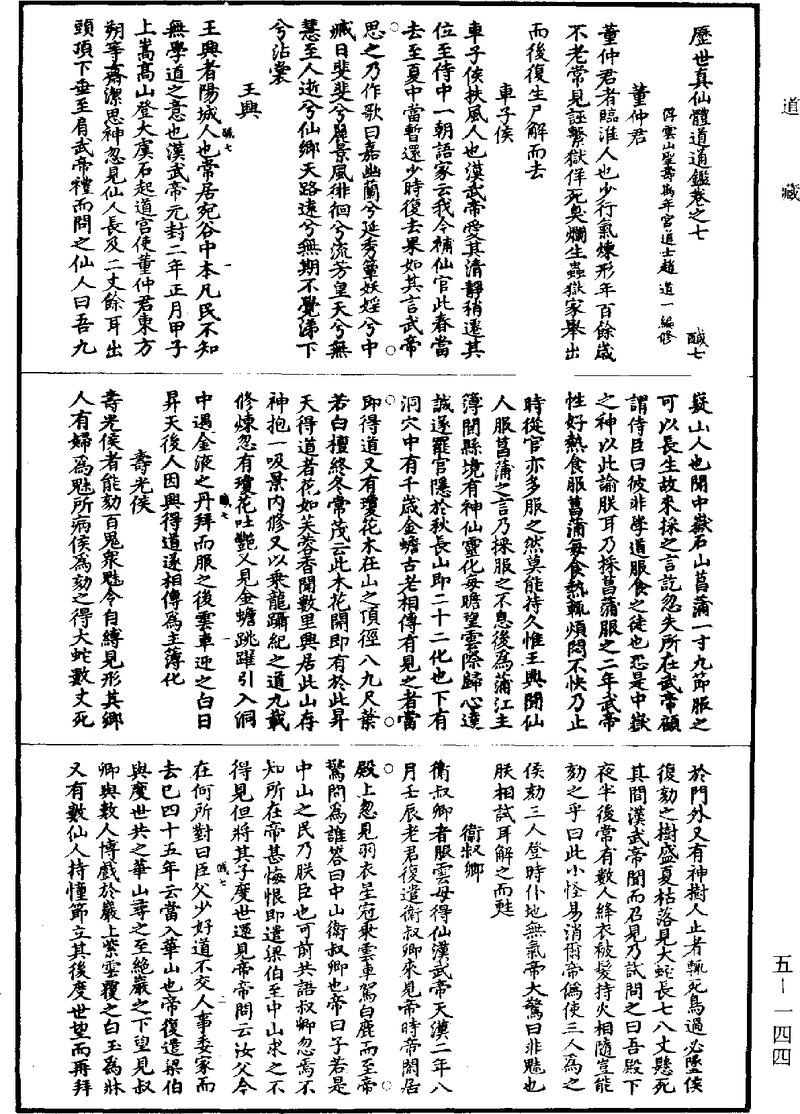 道藏
歷世真仙體道通鑑卷之七 醎七
浮雲山聖壽萬年宮道士趙道一編修
董仲君
董仲君者臨淮人也少行氣煉形年百餘歲
不老常見誣繫獄佯死臭爛生蟲獄家舉出
而後復生尸解而去
車子侯
車子侯扶風人也漢武帝愛其清靜稍遷其
位至侍中一朝語家云我今補仙官此春當
去至夏中當暫還少時復去果如其言武帝
思之乃作歌曰嘉幽蘭兮延秀蕈妖婬兮中
溏日斐斐兮麗景風徘徊兮流芳皇天兮無
慧至人逝兮仙鄉天路遠兮無期不覺涕下
兮沾裳
王興
王興者陽城人也常居宛谷中本凡民不知
無學道之意也漢武帝元封二年正月甲子
上嵩高山登大虞石起道宫使董仲君東方
朔等齋潔思神忽見仙人長及二丈餘耳出
頭頂下垂至肩武帝禮而問之仙人曰吾九
嶷山人也聞中嶽石山菖蒲一寸九節服之
可以長生故來採之言訖忽失所在武帝顧
謂侍臣曰彼非學道服食之徒也恐是中嶽
之神以此諭朕耳乃採菖蒲服之二年武帝
性好熱食服菖蒲每食熱輒煩悶不快乃止
時從官亦多服之然莫能持久惟王興聞仙
人服菖蒲之言乃採服之不息後為蒲江主
簿聞縣境有神仙靈化每瞻望雲際歸心達
誠遂罷官隱於秋長山即二十二化也下有
洞穴中有千歲金蟾古老相傳有見之者當
即得道又有瓊花木在山之頂徑八九尺葉
若白檀終冬常茂云此木花開即有於此昇
天得道者花如芙蓉香聞數里興居此山存
神抱一吸景内修又以乘龍躡紀之道九載
修煉忽有瓊花吐艷又見金蟾跳躍引入洞
中遇金液之丹拜而服之後雲車迎之白日
昇天後人因興得道遂相傳為主簿化
壽光侯
壽光侯者能劾百鬼衆魅令自縛見形其鄉
人有婦為魅所病侯為劾之得大蛇數丈死
於門外又有神樹人止者輒死鳥過必墜侯
復劾之樹盛夏枯落見大蛇長七八丈懸死
其間漢武帝聞而召見乃試問之曰吾殿下
夜半後常有數人絳衣被髮持火相隨豈能
劾之乎曰此小怪易消爾帝偽使三人為之
侯劾三人登時仆地無氣帝大驚曰非魅也
朕相試耳解之而甦
衛叔卿
衛叔卿者服雲母得仙漢武帝天漢二年八
月壬辰老君復遣衛叔卿來見帝時帝閒居
殿上忽見羽衣星冠乘雲車駕白鹿而至帝
驚問為誰答曰中山衛叔卿也帝曰子若是
中山之民乃朕臣也可前共語叔卿忽焉不
知所在帝甚悔恨即遣梁伯至中山求之不
得見但將其子度世還見帝帝問云汝父今
在何所對曰臣父少好道不交人事委家而
去已四十五年云當入華山也帝復遣梁伯
與度世共之華山尋之至絶巖之下望見叔
卿與數人博戲於巖上紫雲覆之白玉為牀
又有數仙人持幢節立其後度世望而再拜
五—一四四